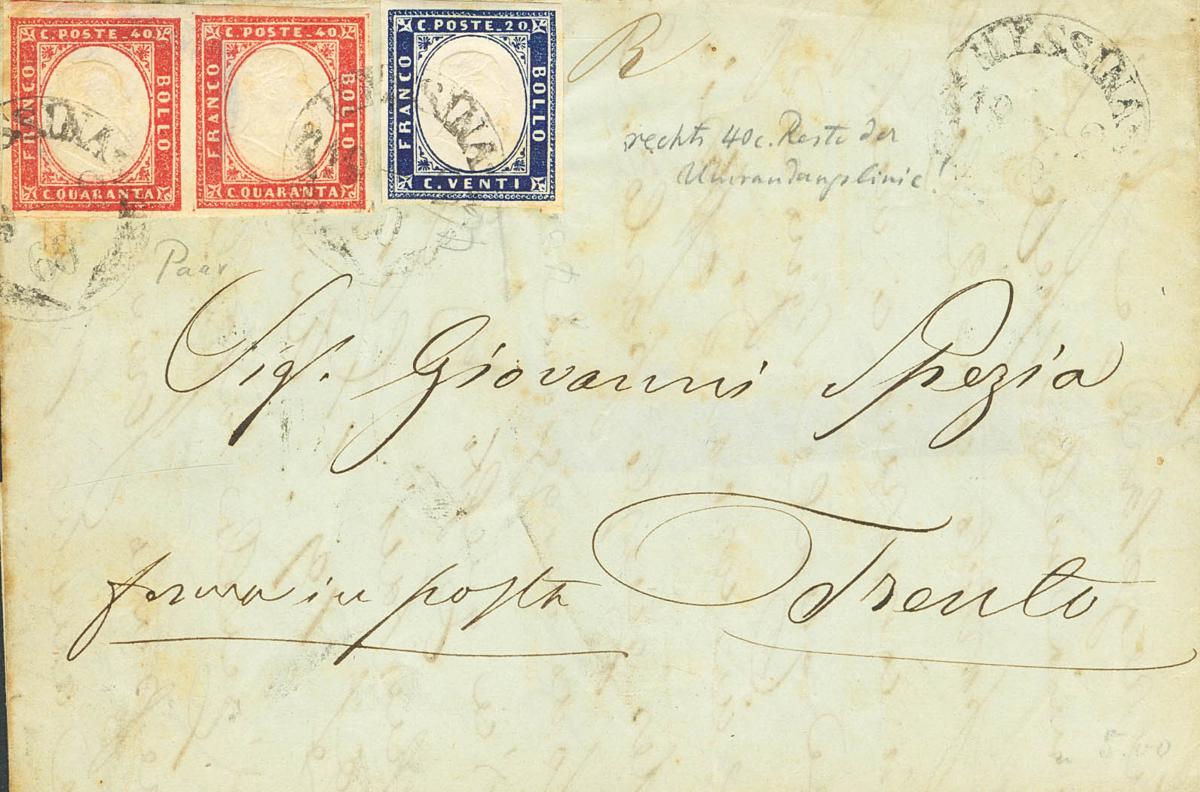 C. POSTE. 40.
FRANCO
BOLLO
C. QUARANTA
C. POSTE. 40.
FRANCO
BOLLO
C. QUARANTA
C. POSTE. 20.
FRANCO
BOLLO
C. VENTI
MESSINA
60
R
MESSINA
rechts 40c. Reste der
Umrandungslinie!
Paar
Sigr. Giovanni Spezia
ferma in posta Trento